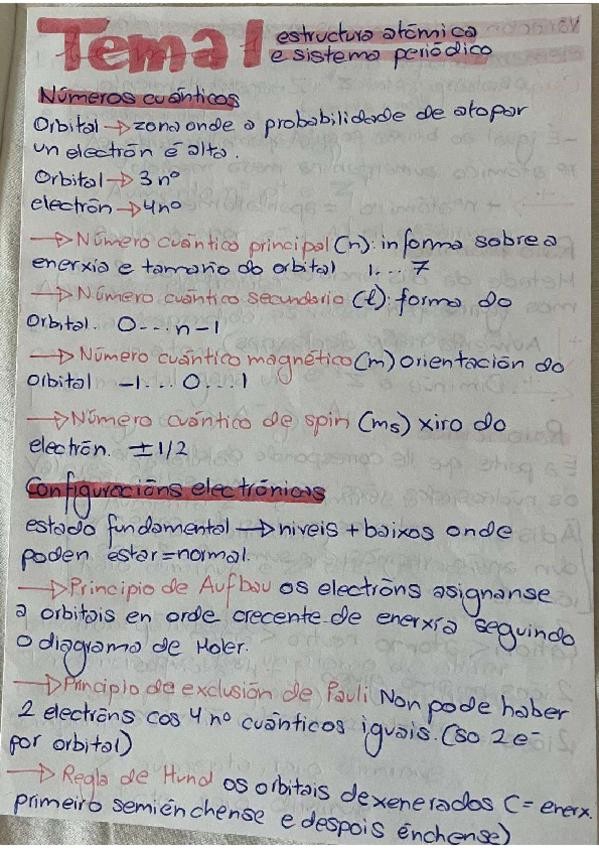 Tema 1 estructura atómica
e sistema periódico
Números cuánticos
Orbital → zona onde a probabilidade de atopar
un electrón é alta.
Orbital → 3 nº
electrón → 4 nº
→ Número cuántico principal (n): informa sobre a
enerxía e tamaño do orbital 1... 7
→ Número cuántico secundario (l): forma do
orbital. 0...n-1
→ Número cuántico magnético (m) orientación do
orbital -1... 0...1
→ Número cuántico de spin (ms) xiro do
electrón. ±1/2
Configuracións electrónicas
estado fundamental → niveis + baixos onde
poden estar = normal.
→ Principio de Aufbau os electróns asignanse
a orbitais en orde crecente de enerxía seguindo
o diagrama de Moler.
→ Principio de exclusión de Pauli Non pode haber
2 electróns cos 4 nº cuánticos iguais. (so 2e-
por orbital)
→ Regla de Hund os orbitais dexenerados (= enerx.
primeiro semiénchense e despois énchense)